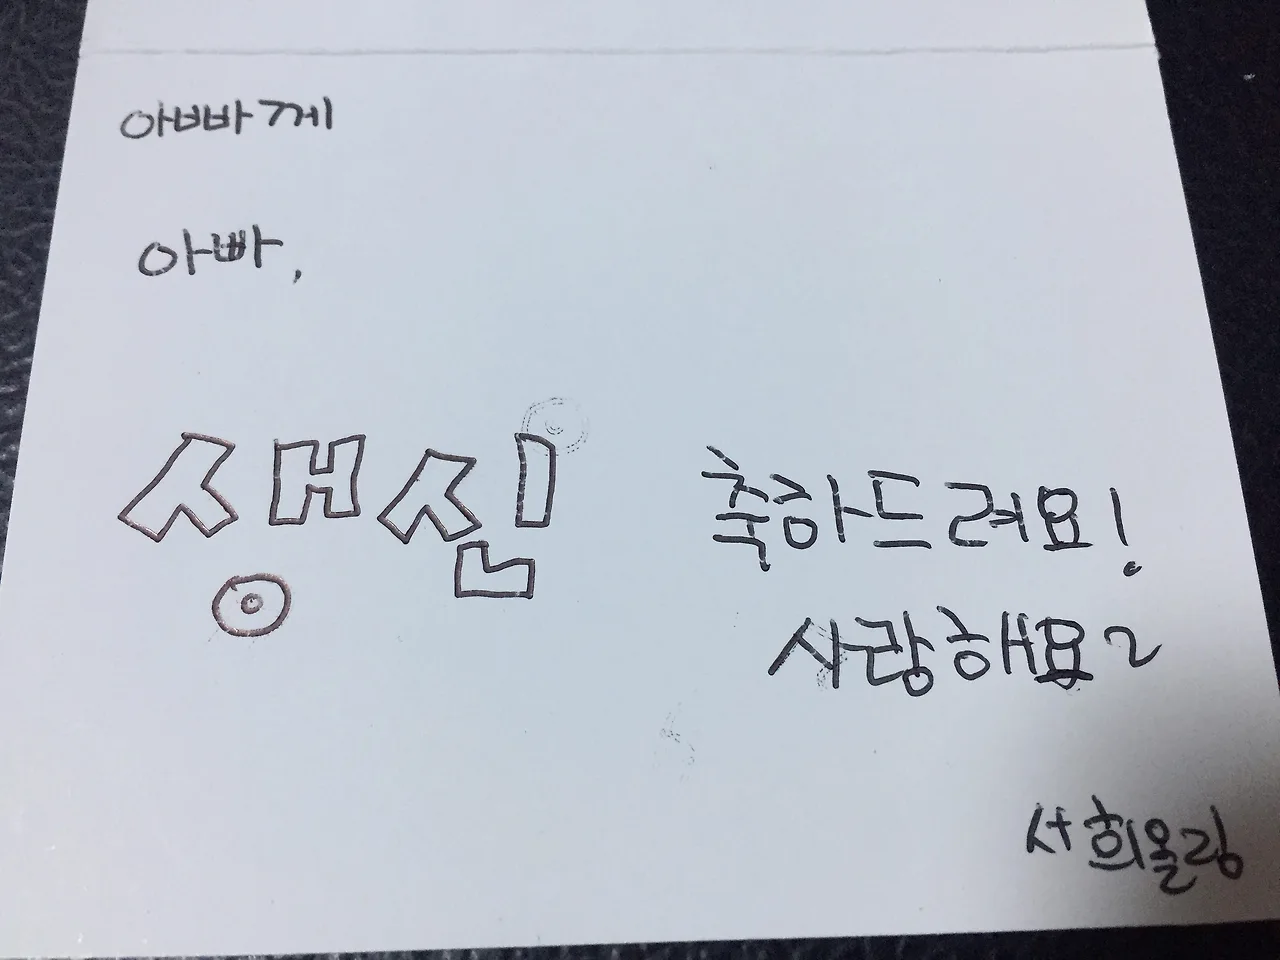 아빠께
아빠,
생신 축하드려요!
사랑해요~
서희올림